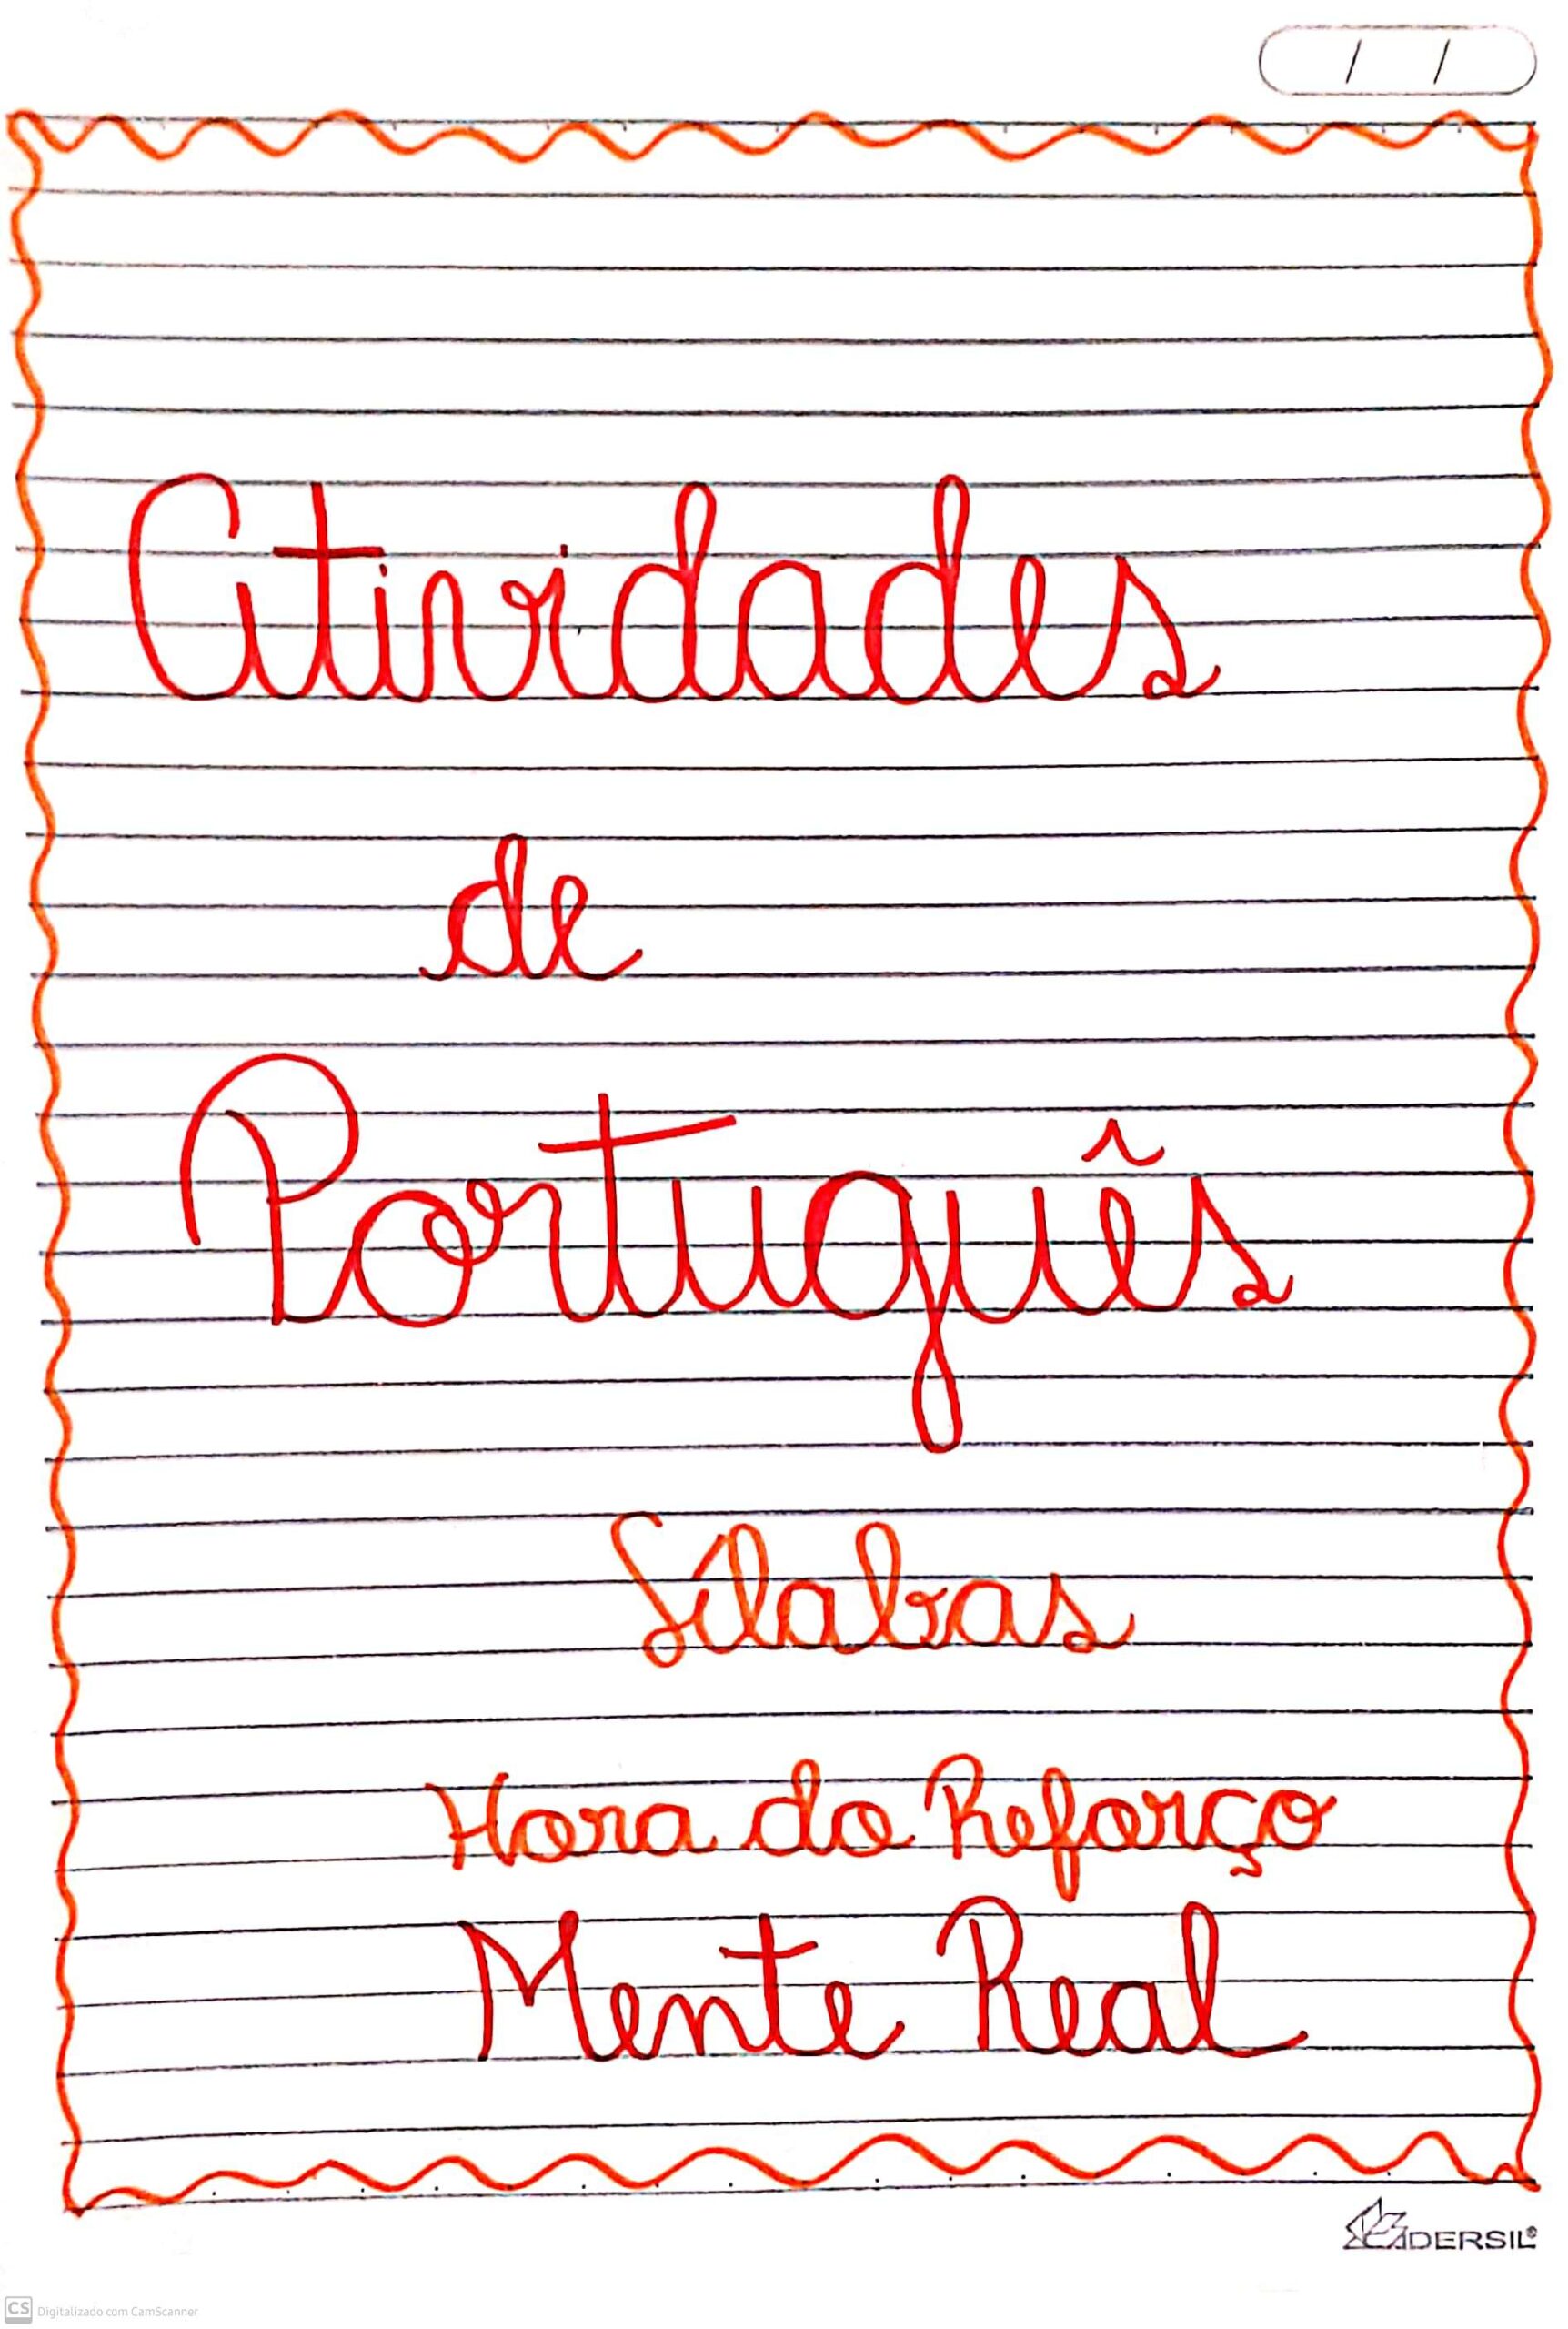 / /
Atividades
de
Português
Sílabas
Hora do Reforço
Mente Real
CADERSIL®
CS Digitalizado com CamScanner